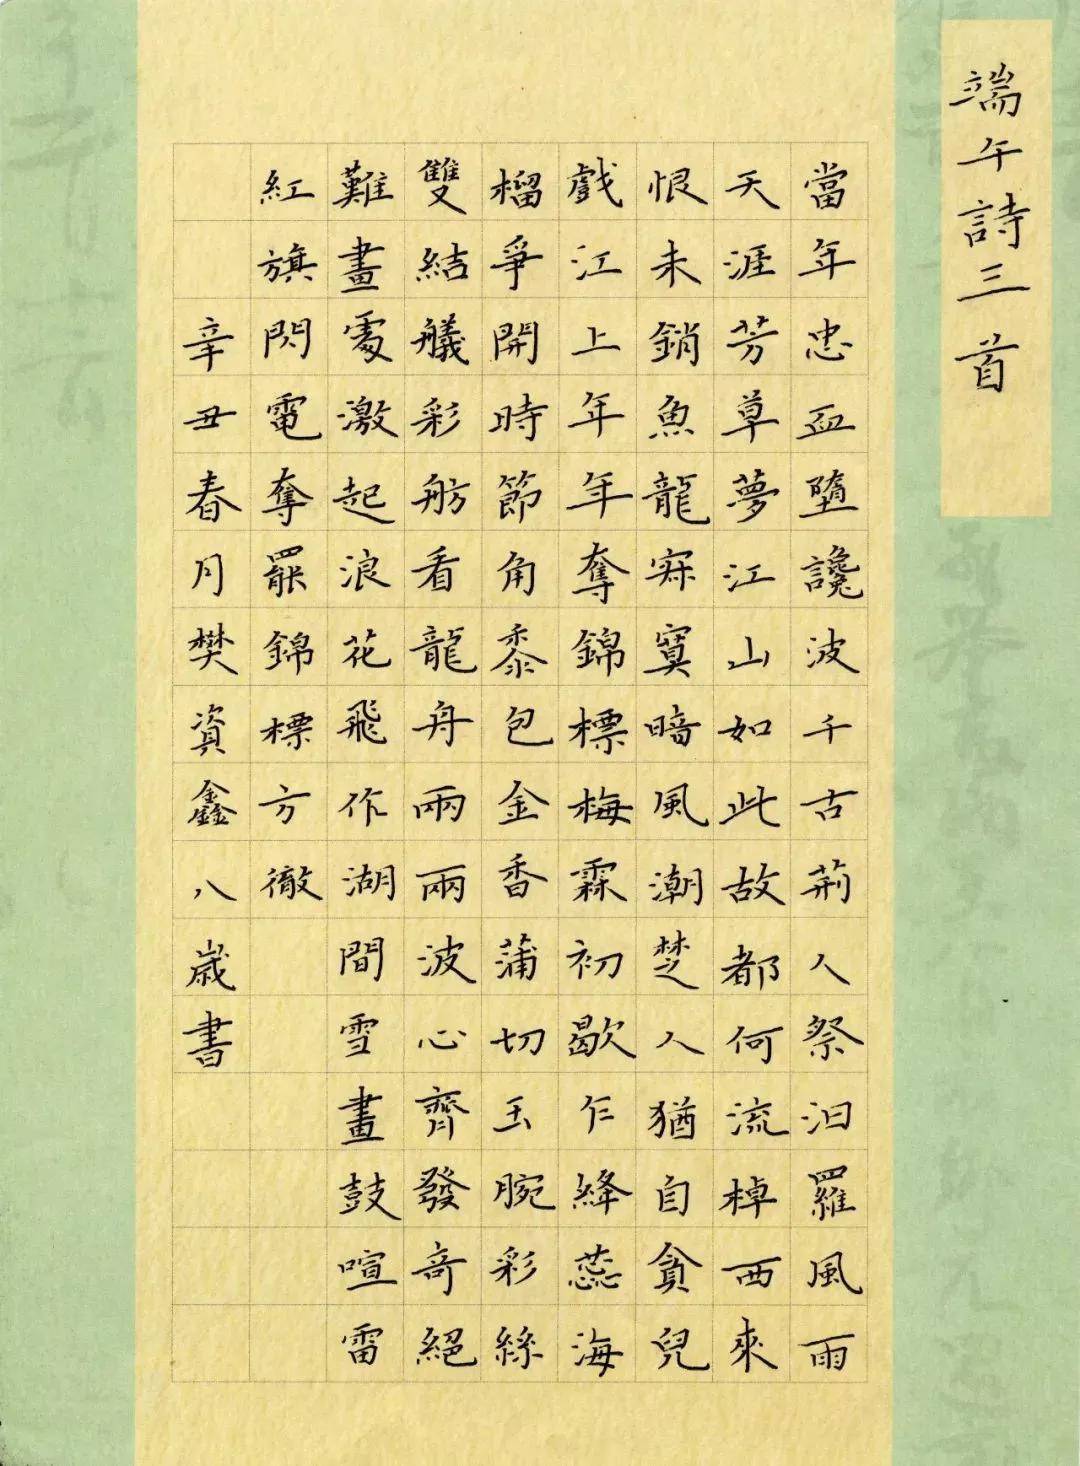 端午詩三首
當年忠血墮讒波千古荊人祭汨羅風雨
天涯芳草夢江山如此故都何流棹西來
恨未銷魚龍寂寞暗風潮楚人猶自貪兒
戲江上年年奪錦標梅霖初歇乍絳蕊海
榴爭開時節角黍包金香蒲切玉腕彩絲
雙結艤彩舫看龍舟兩兩波心齊發奇絕
難畫處激起浪花飛作湖間雪畫鼓喧雷
紅旗閃電奪罷錦標方徹
辛丑春月樊資鑫八歲書